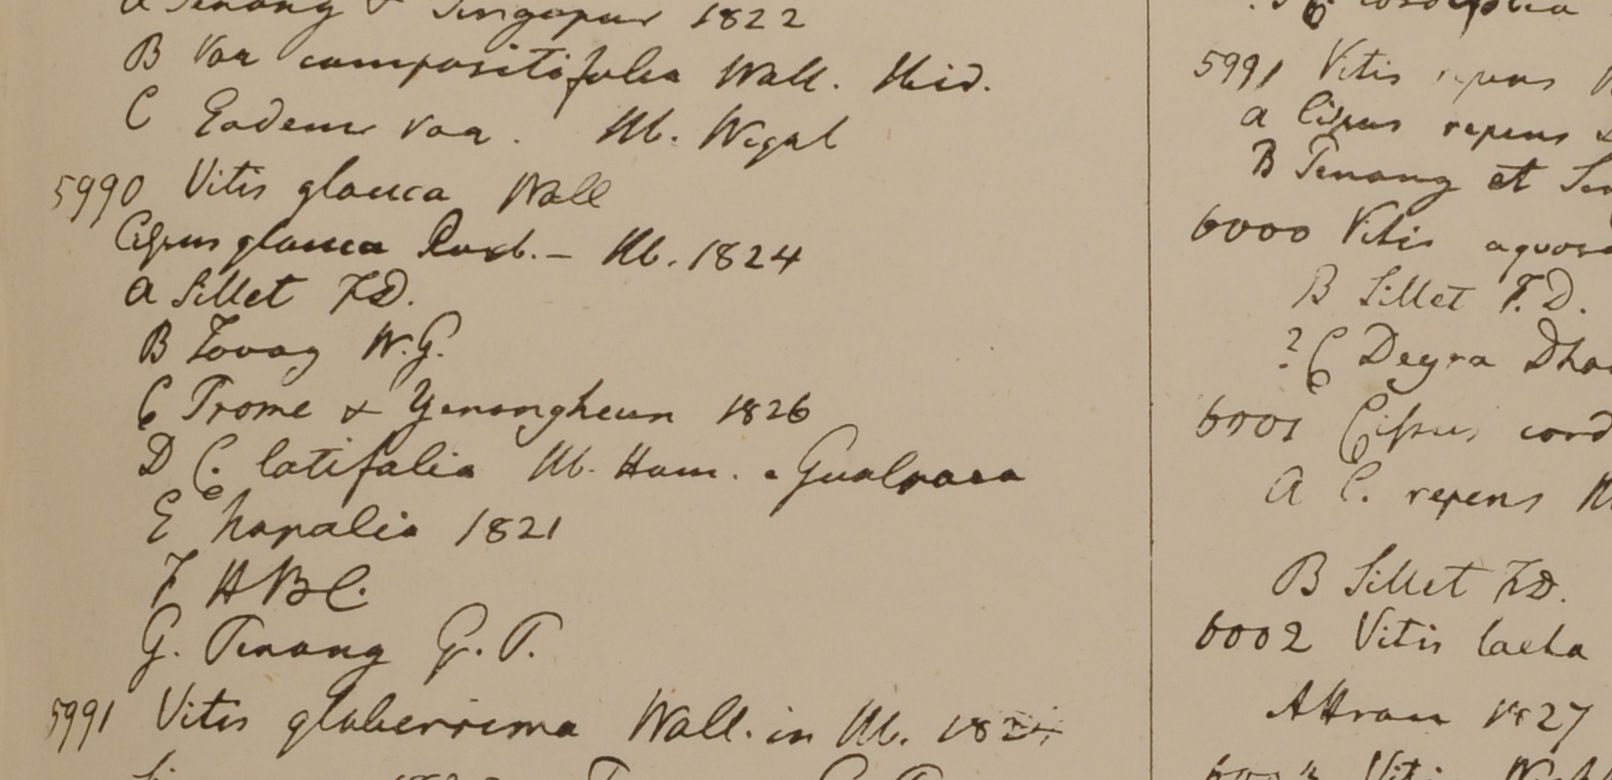 a Penang & Singapur 1822
B Var compositifolia Wall. Hid.
C Eadem var. Hb. Wegal
5990 Vitis glauca Wall
Cissus glauca Roxb. - Hb. 1824
a Sillet F.D.
B Tovoy W.G.
C Prome & Yenangheun 1826
D C. latifolia Hb. Ham. e Gualpara
E Napalia 1821
F HBC.
G. Penang G.P.
5991 Vitis glaberrima Wall. in Hb.
5991 Vitis repens
a Cissus repens
B Penang et
6000 Vitis aquosa
B Sillet F.D.
? C Deyra
6001 Cissus cord
A C. repens
B Sillet F.D.
6002 Vitis laeta
Attran 1827